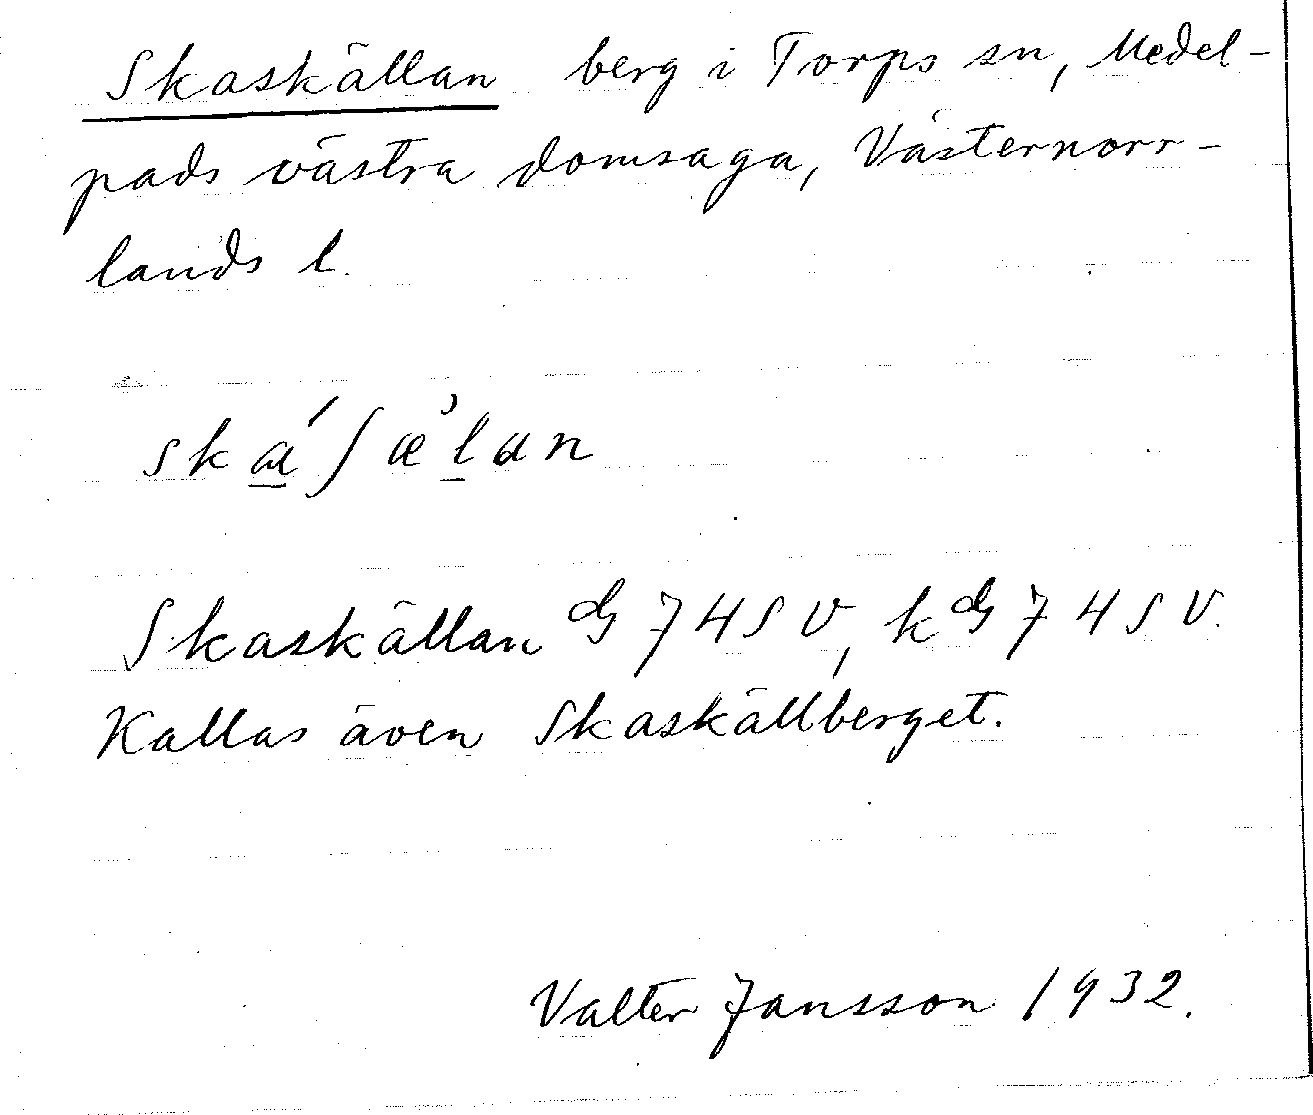 Skaskällan berg i Torps sn, Medel-
pads västra domsaga, Västernorr-
lands l.
ska̱´ʃæ`ḻan
Skaskällan G 74 SV, k G 74 SV.
Kallas även Skaskällberget.
Valter Jansson 1932.